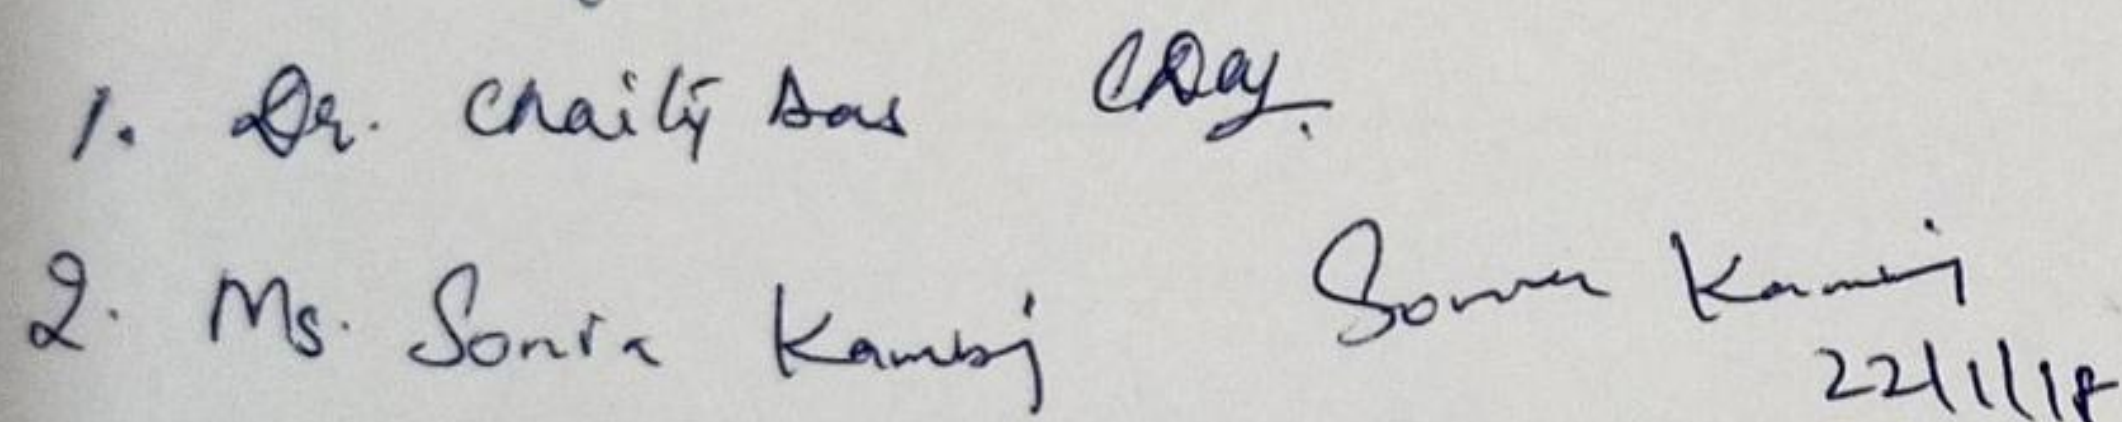 1. Dr. Chaity Das CDas.
2. Ms. Sonia Kamboj Sonia Kamboj
22/1/18